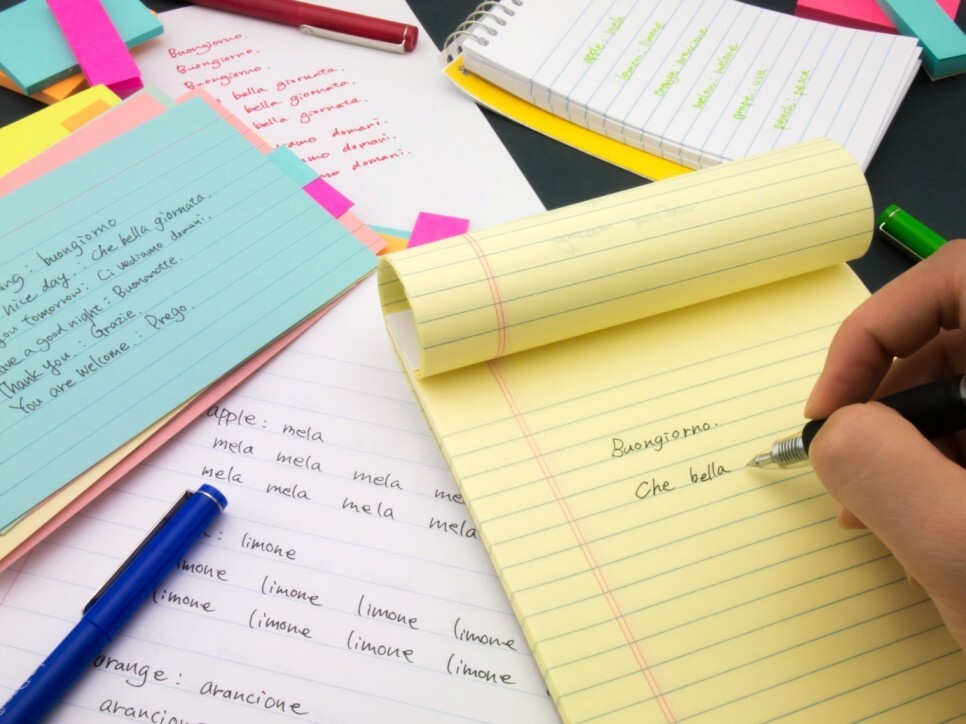 Buongiorno.
Buongiorno.
Buongiorno.
bella giornata.
bella giornata.
bella giornata.
amo domani.
amo domani.
domani.
apple: mela
lemon: limone
orange: arancione
grape: uva
peach: pesca
ng : buongiorno
nice day : Che bella giornata.
you tomorrow: Ci vediamo domani.
ave a good night: Buonanotte.
Thank you : Grazie.
You are welcome : Prego.
apple : mela
mela mela mela me
mela mela mela mela
: limone
imone limone limone limone
limone limone limone limone
orange : arancione
arancion
Buongiorno.
Che bella